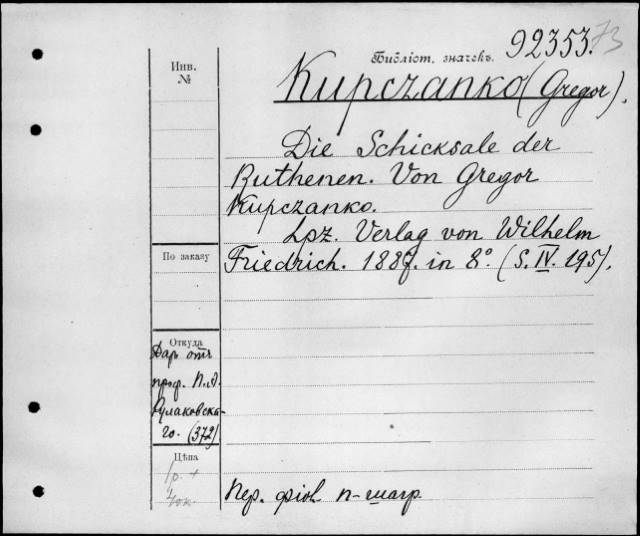 92353.
73
Библіот. значекъ.
Инв.
№
Kupczanko (Gregor).
Die Schicksale der
Ruthenen. Von Gregor
Kupczanko.
Lpz. Verlag von Wilhelm
Friedrich. 1887. in 8° (S. IV. 195).
По заказу
Откуда
Даръ отъ
проф. П. А.
Кулаковска-
го. (372)
Цѣна
1р. +
Пер. фіол. п-шагр.